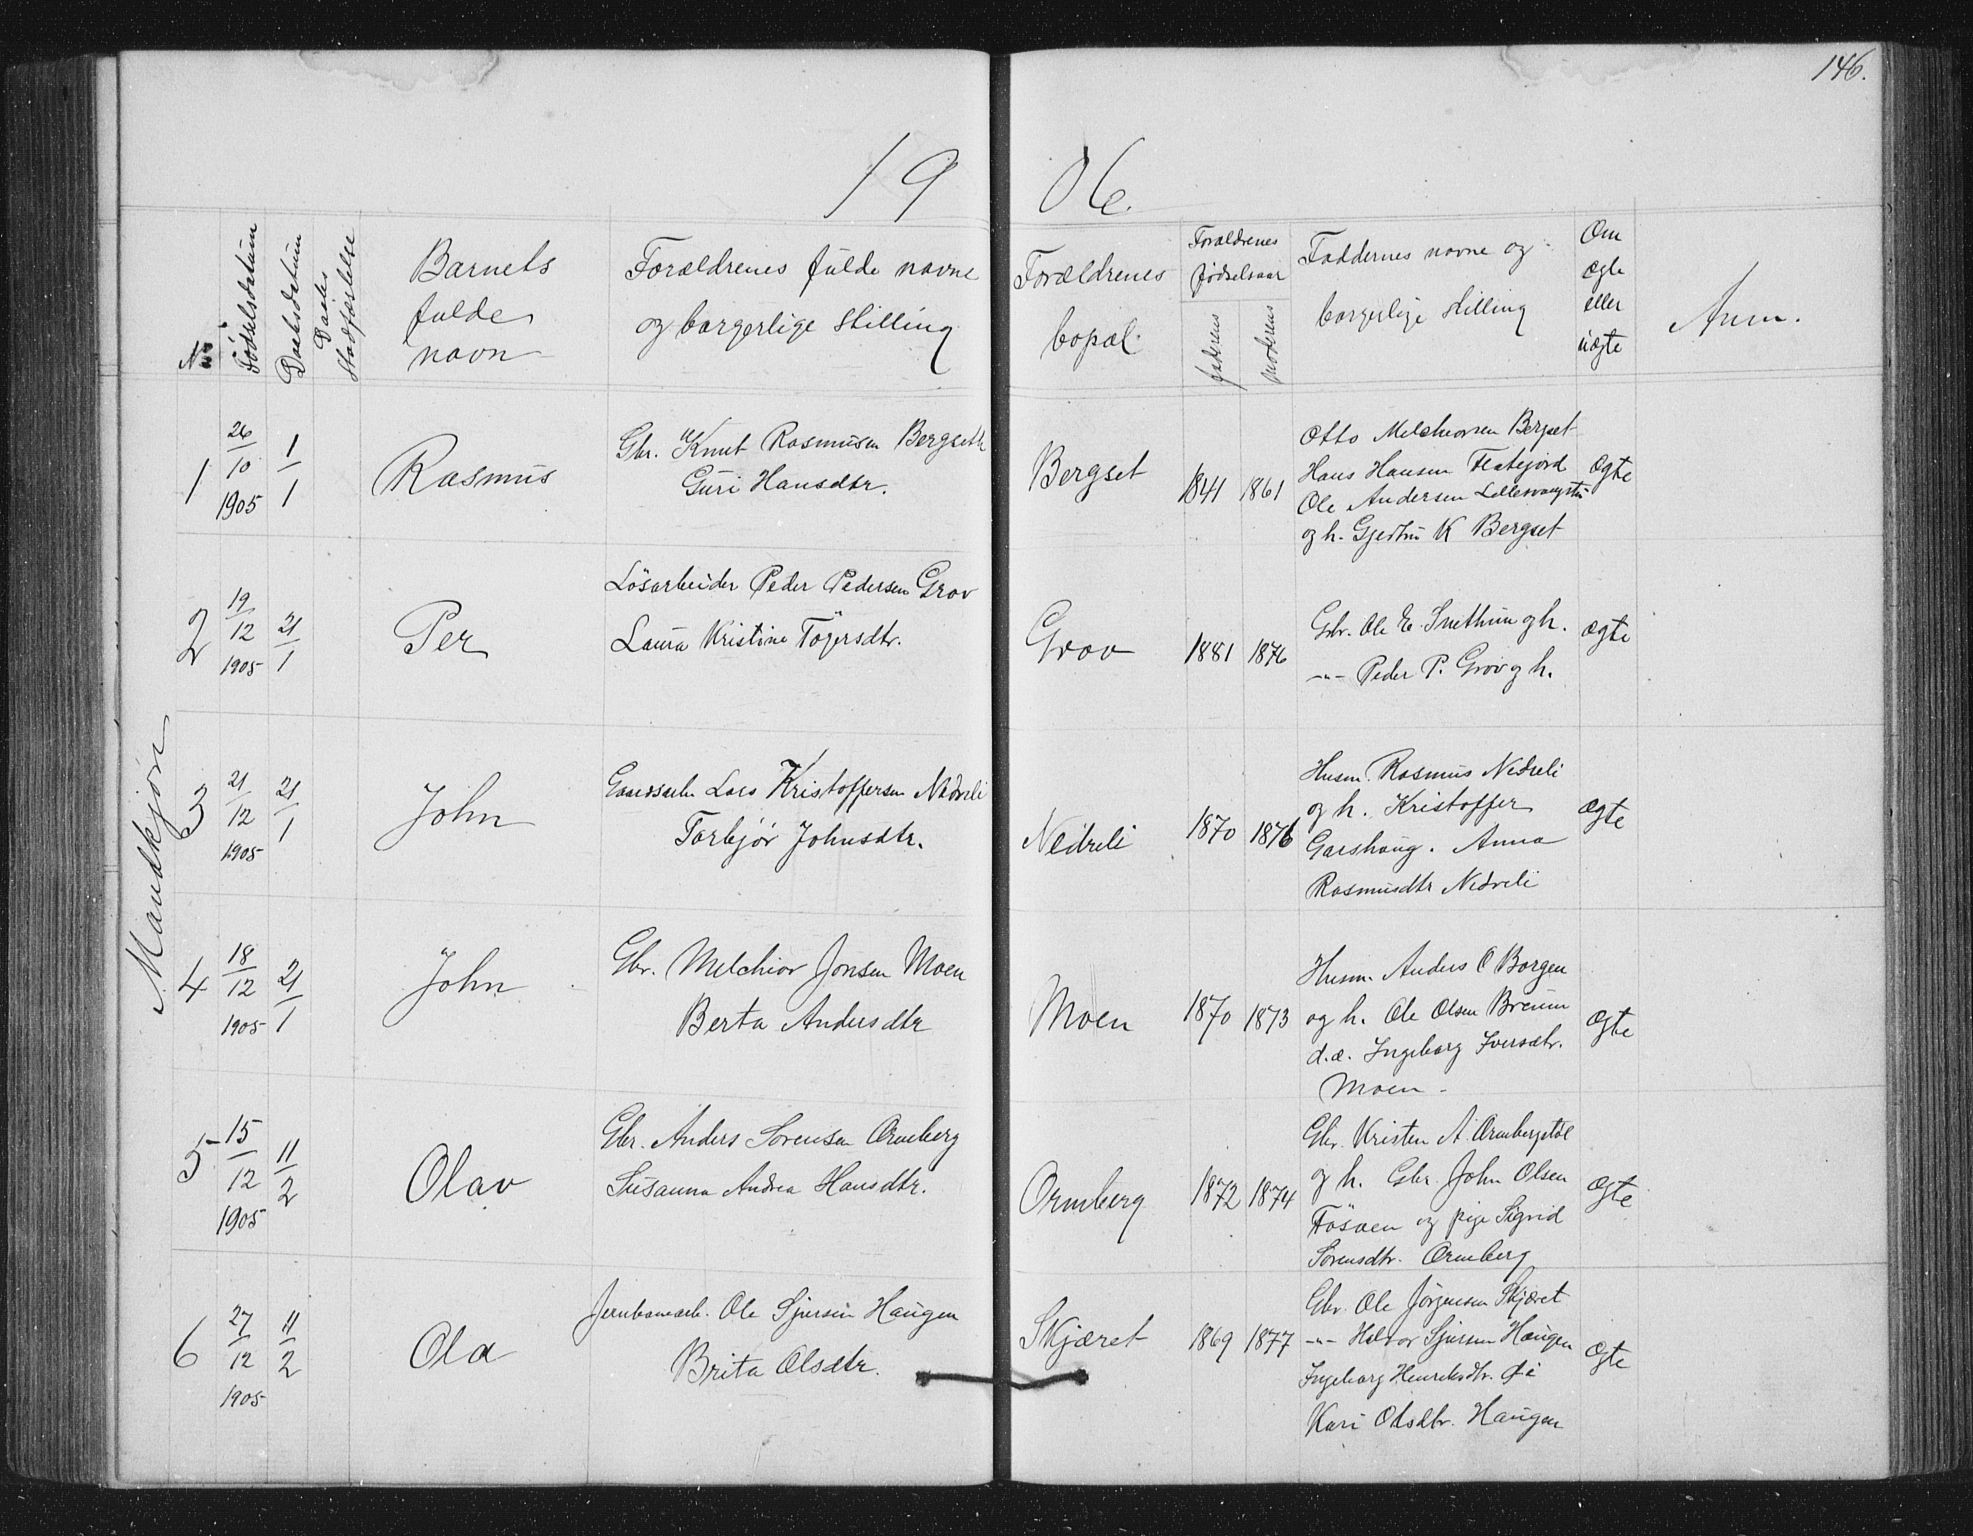 146.
19 06.
No
Födselsdatum
Daabsdatum
Daabs Stadfæstelse
Barnets fulde navn
Forældrenes fulde navne og borgerlige stilling
Forældrenes bopæl.
Forældrenes fødselsaar
faderens
moderens
Faddernes navne og borgerlige stilling
Om ægte eller uægte
Anm.
Mandkjøn
1
26/10 1905
1/1
Rasmus
Gbr. Knut Rasmusen Bergseth
Guri Hansdtr.
Bergset
1841
1861
Otto Melchiorsen Bergset
Hans Hansen Flatejord
Ole Andersen
og h. Gjertru K Bergset
ægte
2
19/12 1905
21/1
Per
Lösarbeider Peder Pedersen Grov
Laura Kristine Tögersdtr.
Grov
1881
1876
Gbr. Ole E. Snethun og h.
-"- Peder P. Grov og h.
ægte
3
21/12 1905
21/1
John
Gaardsarb Lars Kristoffersen Nedreli
Torbjör Johnsdtr.
Nedreli
1870
1876
Husm. Rasmus Nedreli
og h. Kristoffer
Garshaug. Anna
Rasmusdtr Nedreli
ægte
4
18/12 1905
21/1
John
Gbr. Melchior Jonsen Moen
Berta Andersdtr
Moen
1870
1873
Husm. Anders O Borgen
og h. Ole Olsen Breum
d.æ. Ingeborg Iversdtr.
Moen -
ægte
5
15/12 1905
11/2
Olav
Gbr. Anders Sorensen Ormberg
Susanna Andrea Hansdtr.
Ormberg
1872
1874
Gbr. Kristen A. Ormbergstöl
og h. Gbr. John Olsen
Fösöen og pige Sigrid
Sorensdtr. Ormberg
ægte
6
27/12 1905
11/2
Ola
Jernbanearb. Ole Sjursen Haugen
Brita Olsdtr.
Skjæret
1869
1877
Gbr. Ole Jörgensen Skjæret
-"- Halvor Sjursen Haugen
Ingeborg Henriksdtr. Øi
Kari Olsdtr. Haugen
ægte